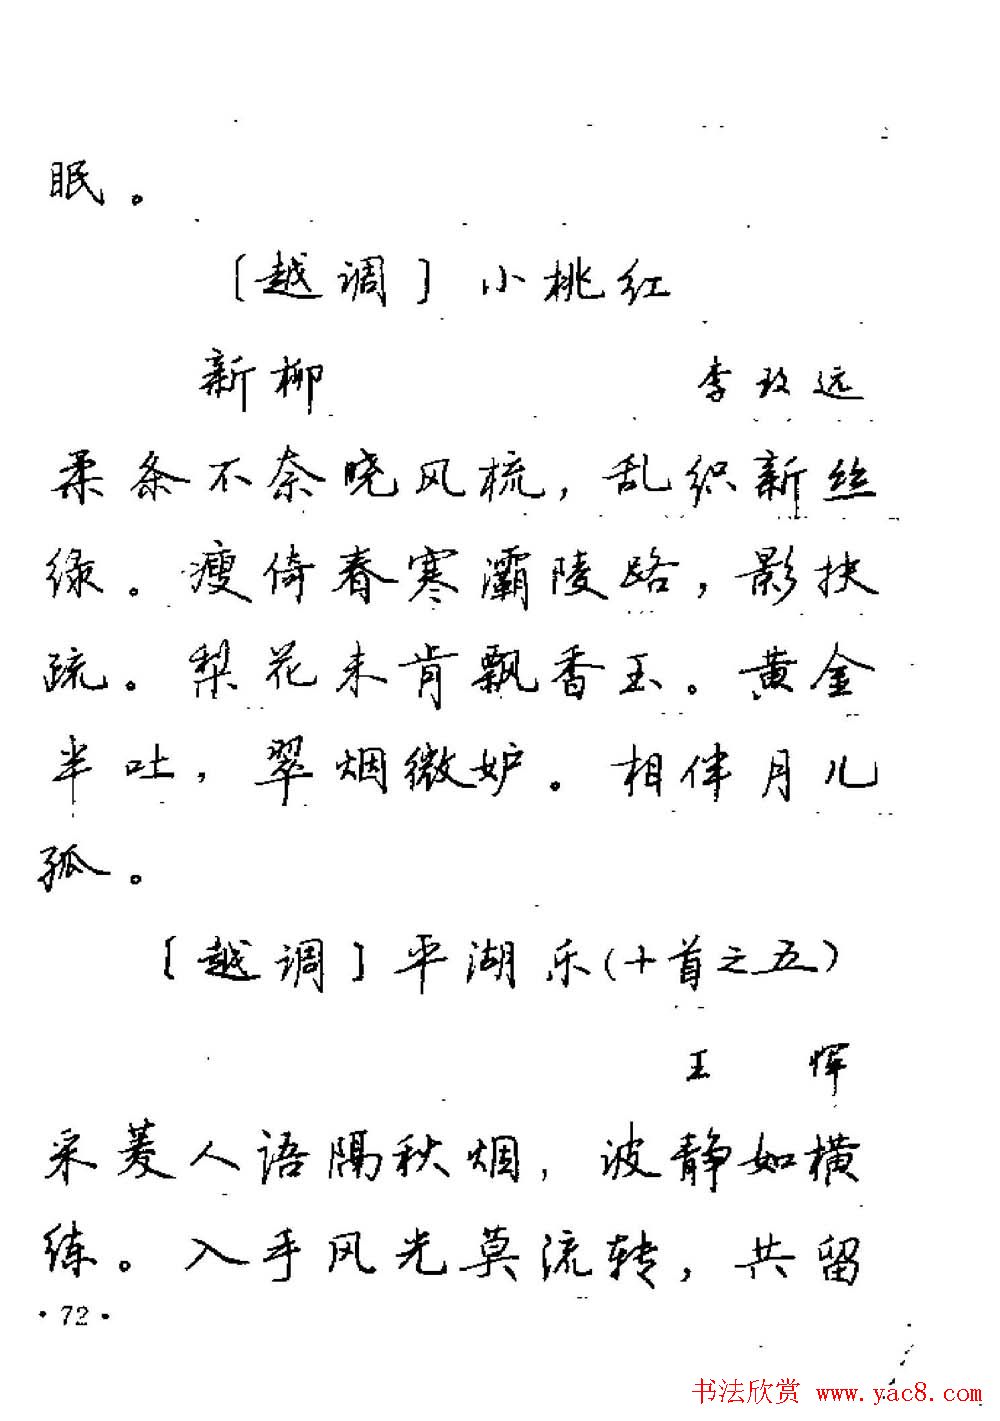 眠。
［越调］小桃红
新柳 李致远
柔条不奈晓风梳，乱织新丝
绿。瘦倚春寒灞陵路，影扶
疏。梨花未肯飘香玉。黄金
半吐，翠烟微妒。相伴月儿
孤。
［越调］平湖乐（十首之五）
王 恽
采菱人语隔秋烟，波静如横
练。入手风光莫流转，共留
·72·
书法欣赏 www.yac8.com